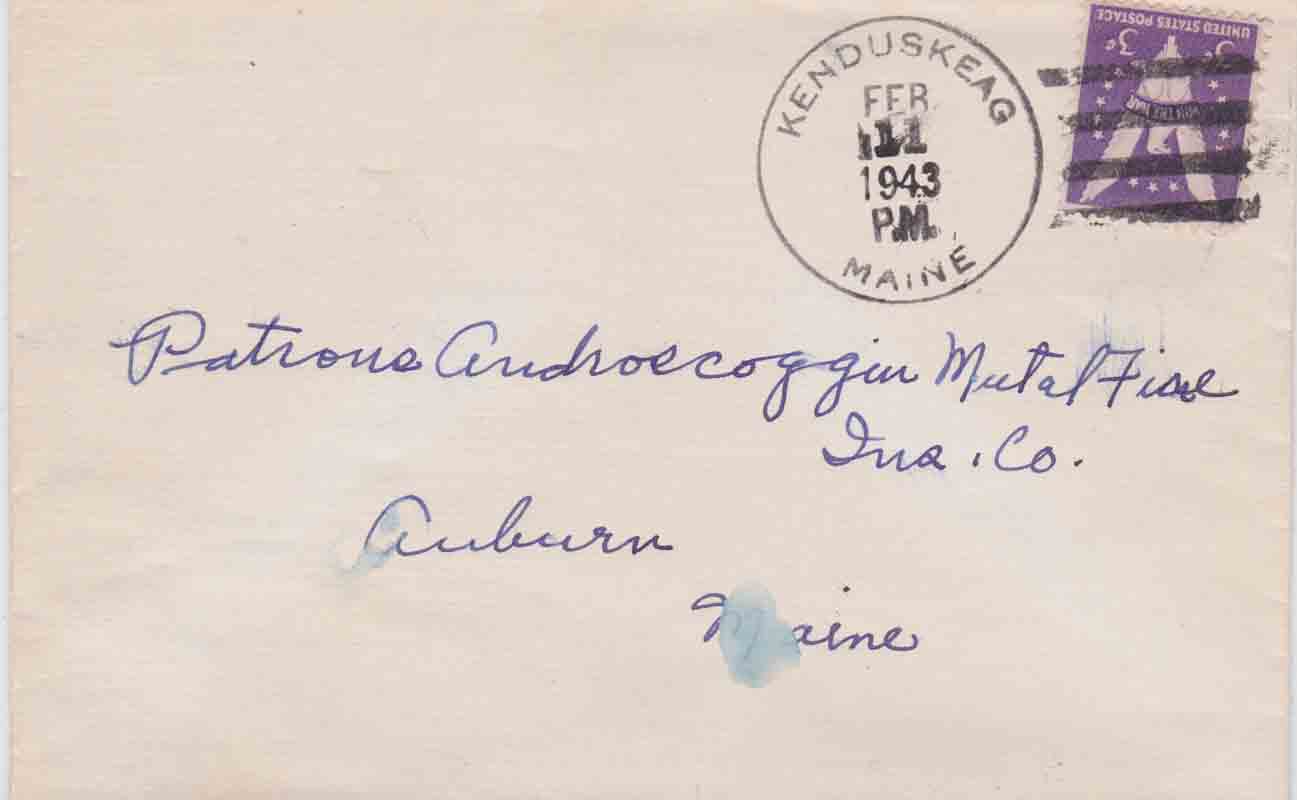 KENDUSKEAG
FEB
11
1943
P.M.
MAINE
UNITED STATES POSTAGE
3¢ 3¢
WIN THE WAR
Patrons Androscoggin Mutal Fire
Ins. Co.
Auburn
Maine